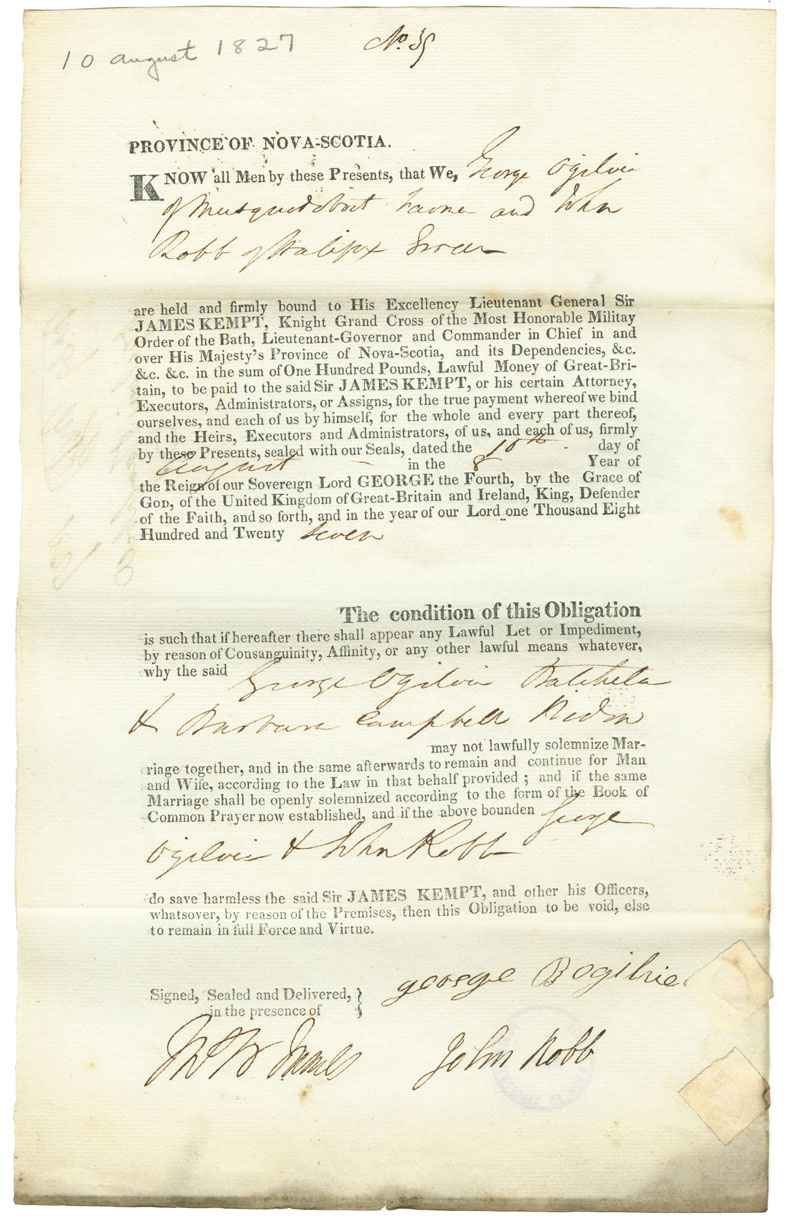 10 august 1827
No. 35
PROVINCE OF NOVA-SCOTIA.
KNOW all Men by these Presents, that We, George Ogilvie
of Musquodoboit and John
Robb of Halifax
are held and firmly bound to His Excellency Lieutenant General Sir
JAMES KEMPT, Knight Grand Cross of the Most Honorable Militay
Order of the Bath, Lieutenant-Governor and Commander in Chief in and
over His Majesty's Province of Nova-Scotia, and its Dependencies, &c.
&c. &c. in the sum of One Hundred Pounds, Lawful Money of Great-Bri-
tain, to be paid to the said Sir JAMES KEMPT, or his certain Attorney,
Executors, Administrators, or Assigns, for the true payment whereof we bind
ourselves, and each of us by himself, for the whole and every part thereof,
and the Heirs, Executors and Administrators, of us, and each of us, firmly
by these Presents, sealed with our Seals, dated the 10th day of
August in the 8 Year of
the Reign of our Sovereign Lord GEORGE the Fourth, by the Grace of
GOD, of the United Kingdom of Great-Britain and Ireland, King, Defender
of the Faith, and so forth, and in the year of our Lord one Thousand Eight
Hundred and Twenty seven
The condition of this Obligation
is such that if hereafter there shall appear any Lawful Let or Impediment,
by reason of Consanguinity, Affinity, or any other lawful means whatever,
why the said George Ogilvie Batchelor
& Barbara Campbell Widow
may not lawfully solemnize Mar-
riage together, and in the same afterwards to remain and continue for Man
and Wife, according to the Law in that behalf provided ; and if the same
Marriage shall be openly solemnized according to the form of the Book of
Common Prayer now established, and if the above bounden George
Ogilvie & John Robb
do save harmless the said Sir JAMES KEMPT, and other his Officers,
whatsover, by reason of the Premises, then this Obligation to be void, else
to remain in full Force and Virtue.
Signed, Sealed and Delivered,
in the presence of
george Bogilvie
John Robb
James